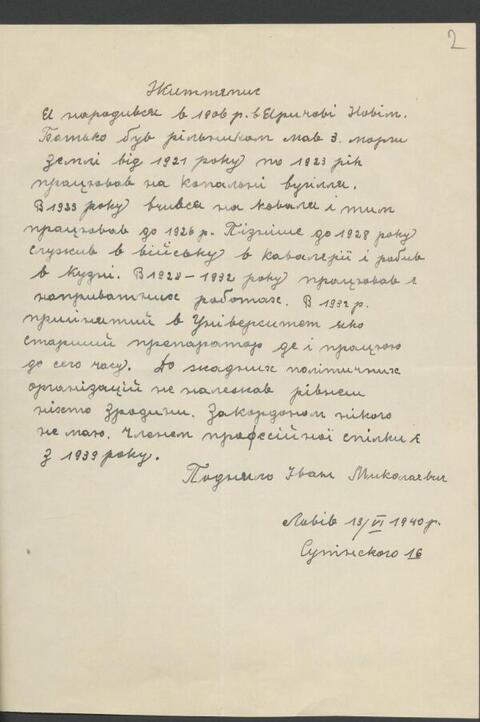 2
Життєпис
Я народився в 1906 р. в Яричові Новім.
Батько був рільником мав 3. морги
землі від 1921 року по 1923 рік
працював на копальні вугілля.
В 1923 року вчився на коваля і тим
працював до 1926 р. Пізніше до 1928 року
служив в війську в кавалерії і робив
в кузні. В 1928–1932 року працював
на приватних роботах. В 1932 р.
прийнятий в Університет яко
старший препаратор де і працюю
до сего часу. До жадних політичних
організацій не належав рівнеж
ніхто зродини. Закордоном нікого
не маю. Членом професійної спілки є
з 1939 року.
Іван Миколаєвич
Львів 13/VI 1940 р.
16